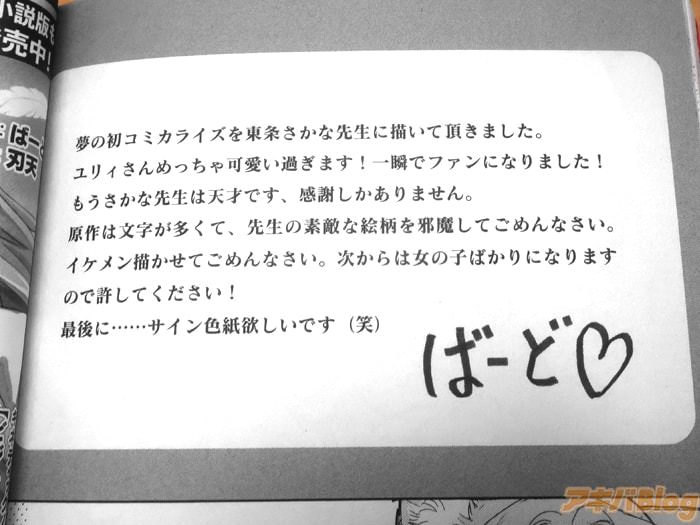 小説版も
売中!
ばー
刃天
夢の初コミカライズを東条さかな先生に描いて頂きました。
ユリィさんめっちゃ可愛い過ぎます！一瞬でファンになりました！
もうさかな先生は天才です、感謝しかありません。
原作は文字が多くて、先生の素敵な絵柄を邪魔してごめんなさい。
イケメン描かせてごめんなさい。次からは女の子ばかりになります
ので許してください！
最後に……サイン色紙欲しいです（笑）
ばーど♡
アキバBlog